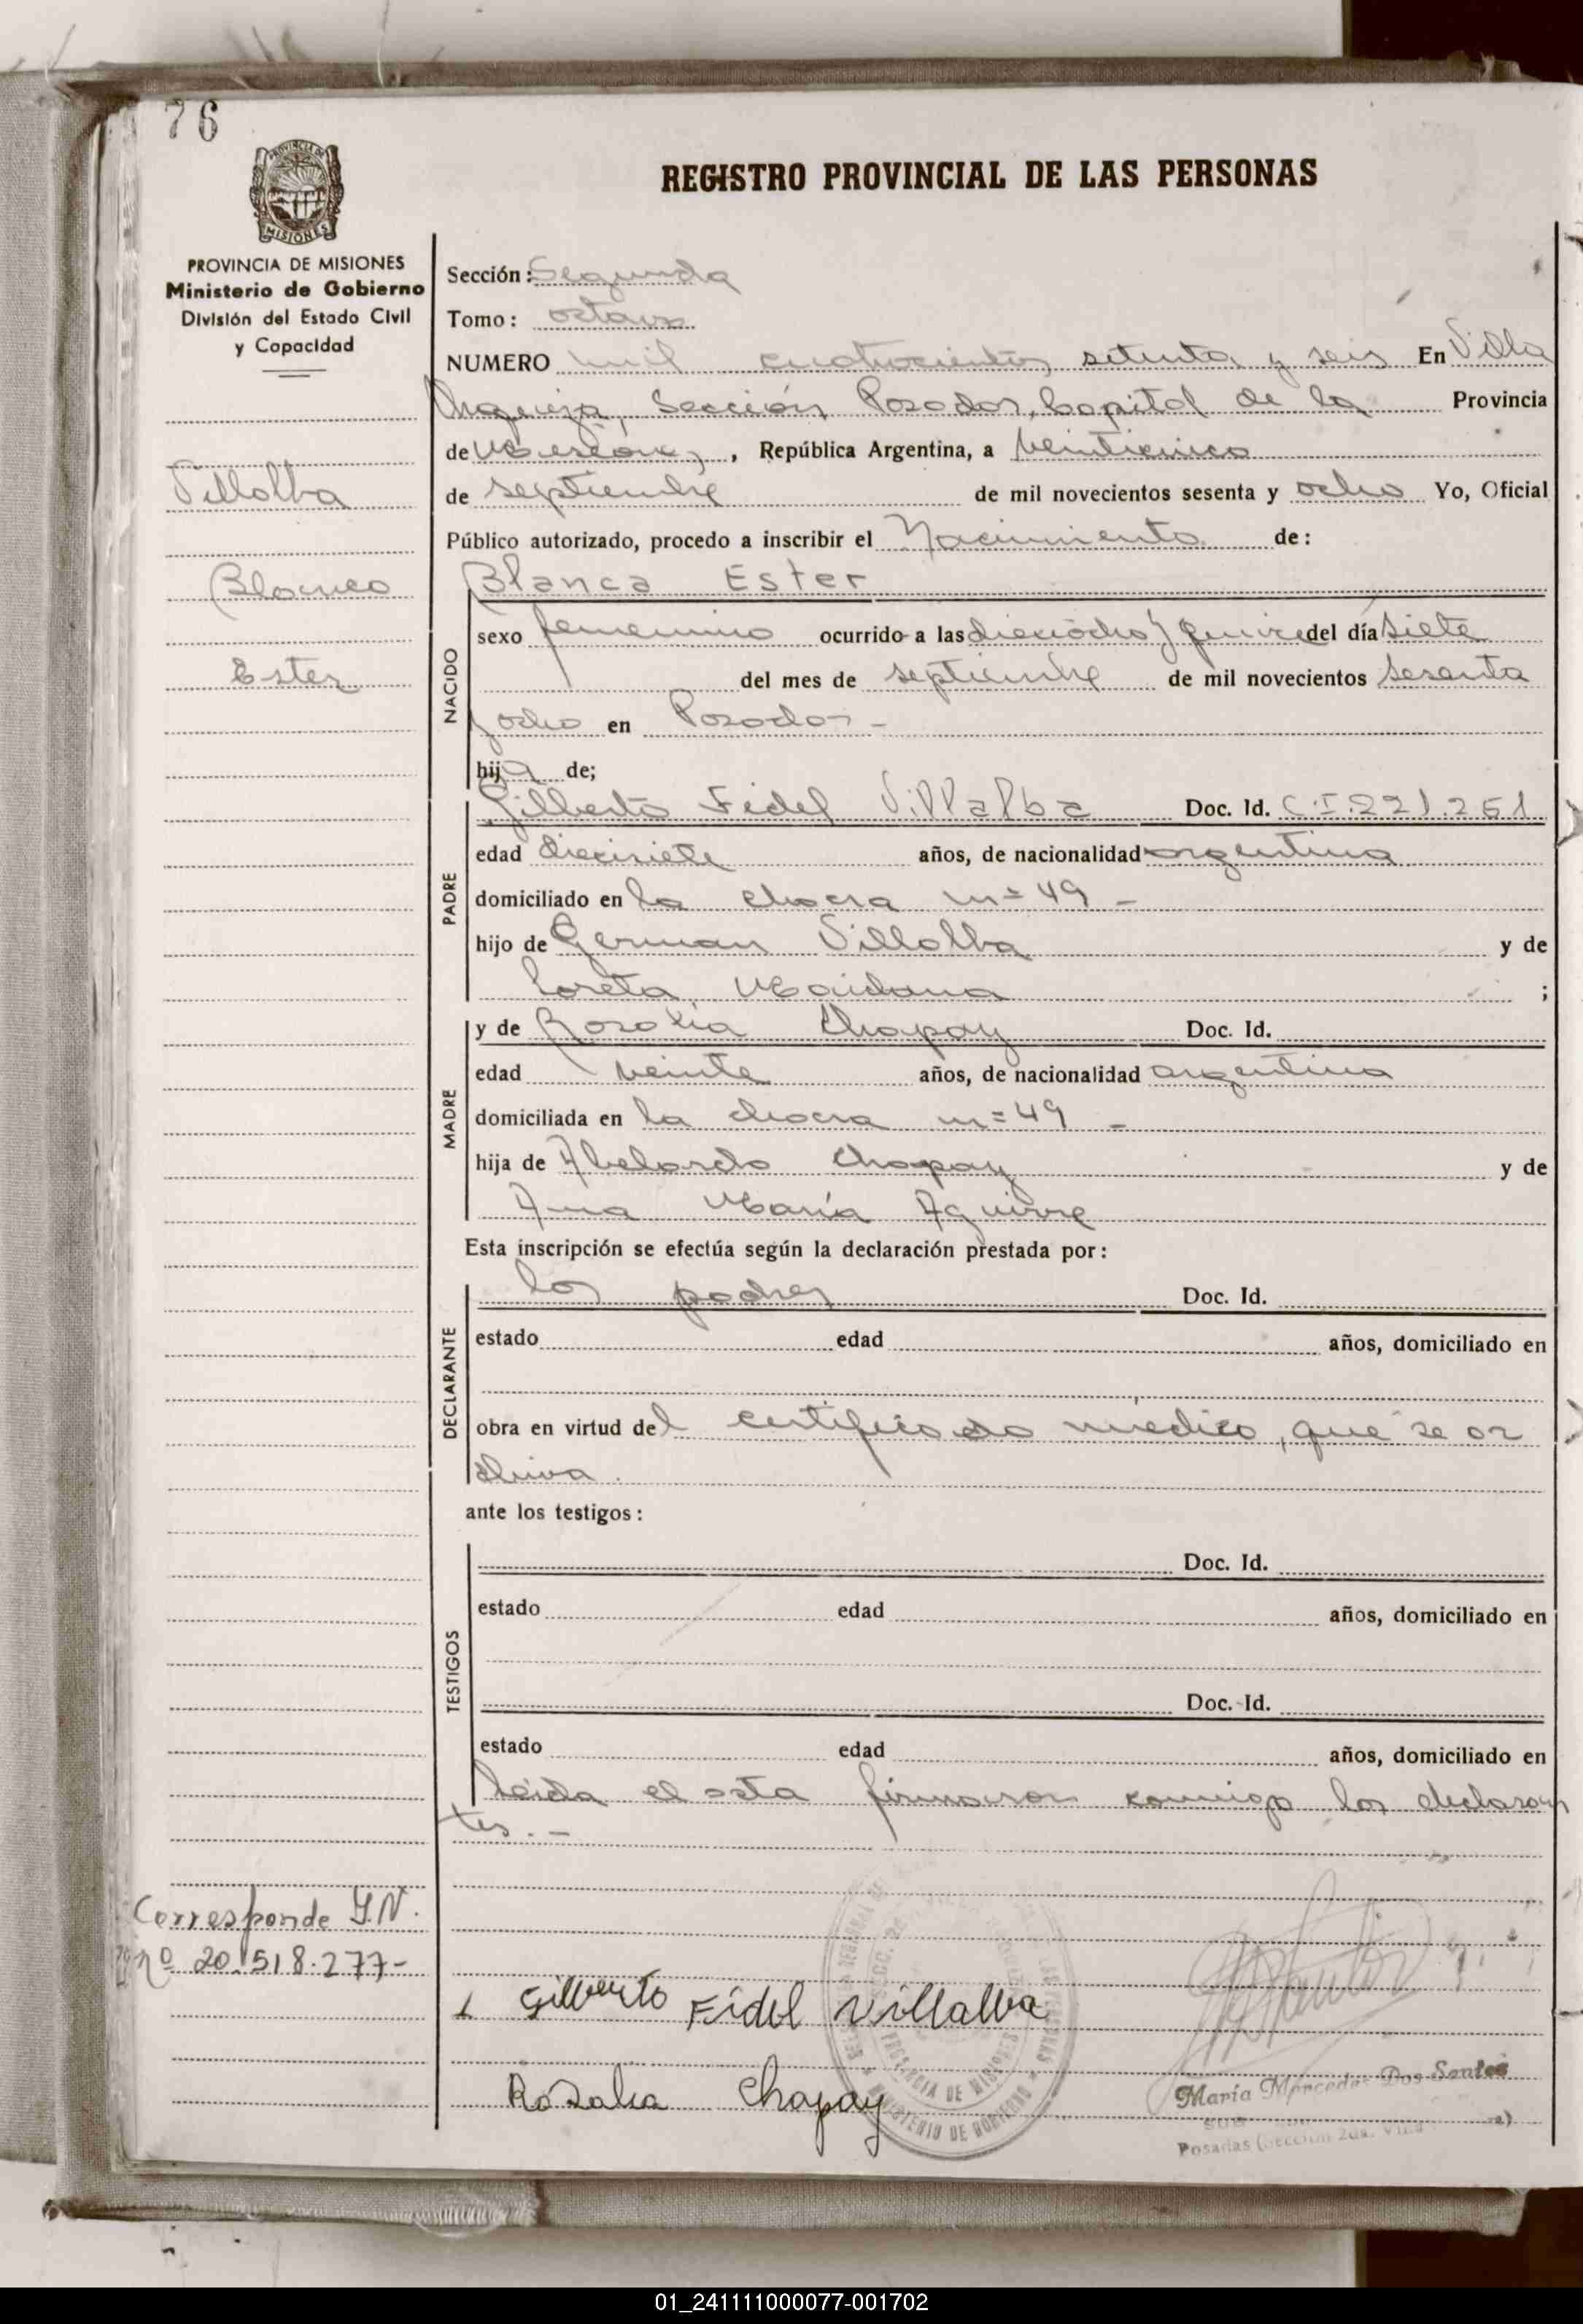 76
PROVINCIA DE MISIONES
MISIONES
PROVINCIA DE MISIONES
Ministerio de Gobierno
División del Estado Civil
y Capacidad
REGISTRO PROVINCIAL DE LAS PERSONAS
Sección: Segunda
Tomo: octavo
NUMERO mil cuatrocientos setenta y seis En Villa
Urquiza, Sección Posadas, Capital de la Provincia
de Misiones, República Argentina, a veinticinco
de septiembre de mil novecientos sesenta y ocho Yo, Oficial
Público autorizado, procedo a inscribir el Nacimiento de:
Villalba
Blanca
Ester
NACIDO
Blanca Ester
sexo femenino ocurrido a las dieciocho y quince del día siete
del mes de septiembre de mil novecientos sesenta
y ocho en Posadas -
hija de;
PADRE
Gilberto Fidel Villalba Doc. Id. C.I.221.251
edad diecisiete años, de nacionalidad argentina
domiciliado en la chacra nº 49 -
hijo de German Villalba y de
Loreta Maidana ;
MADRE
y de Rosalia Chapay Doc. Id.
edad veinte años, de nacionalidad argentina
domiciliada en la chacra nº 49 -
hija de Abelardo Chapay y de
Ana María Aguirre
Esta inscripción se efectúa según la declaración prestada por:
DECLARANTE
los padres Doc. Id.
estado edad años, domiciliado en
obra en virtud del certificado medico, que se ar
chiva.
ante los testigos:
TESTIGOS
Doc. Id.
estado edad años, domiciliado en
Doc. Id.
estado edad años, domiciliado en
Leida el acta firmaron conmigo los declaran
tes. -
Corresponde I.N.
nº 20.518.277-
Gilberto Fidel Villalba
Rosalia Chapay
PROVINCIA DE MISIONES
MINISTERIO DE GOBIERNO
María Mercedes Dos Santos
Posadas (Sección 2da. Villa
01_241111000077-001702